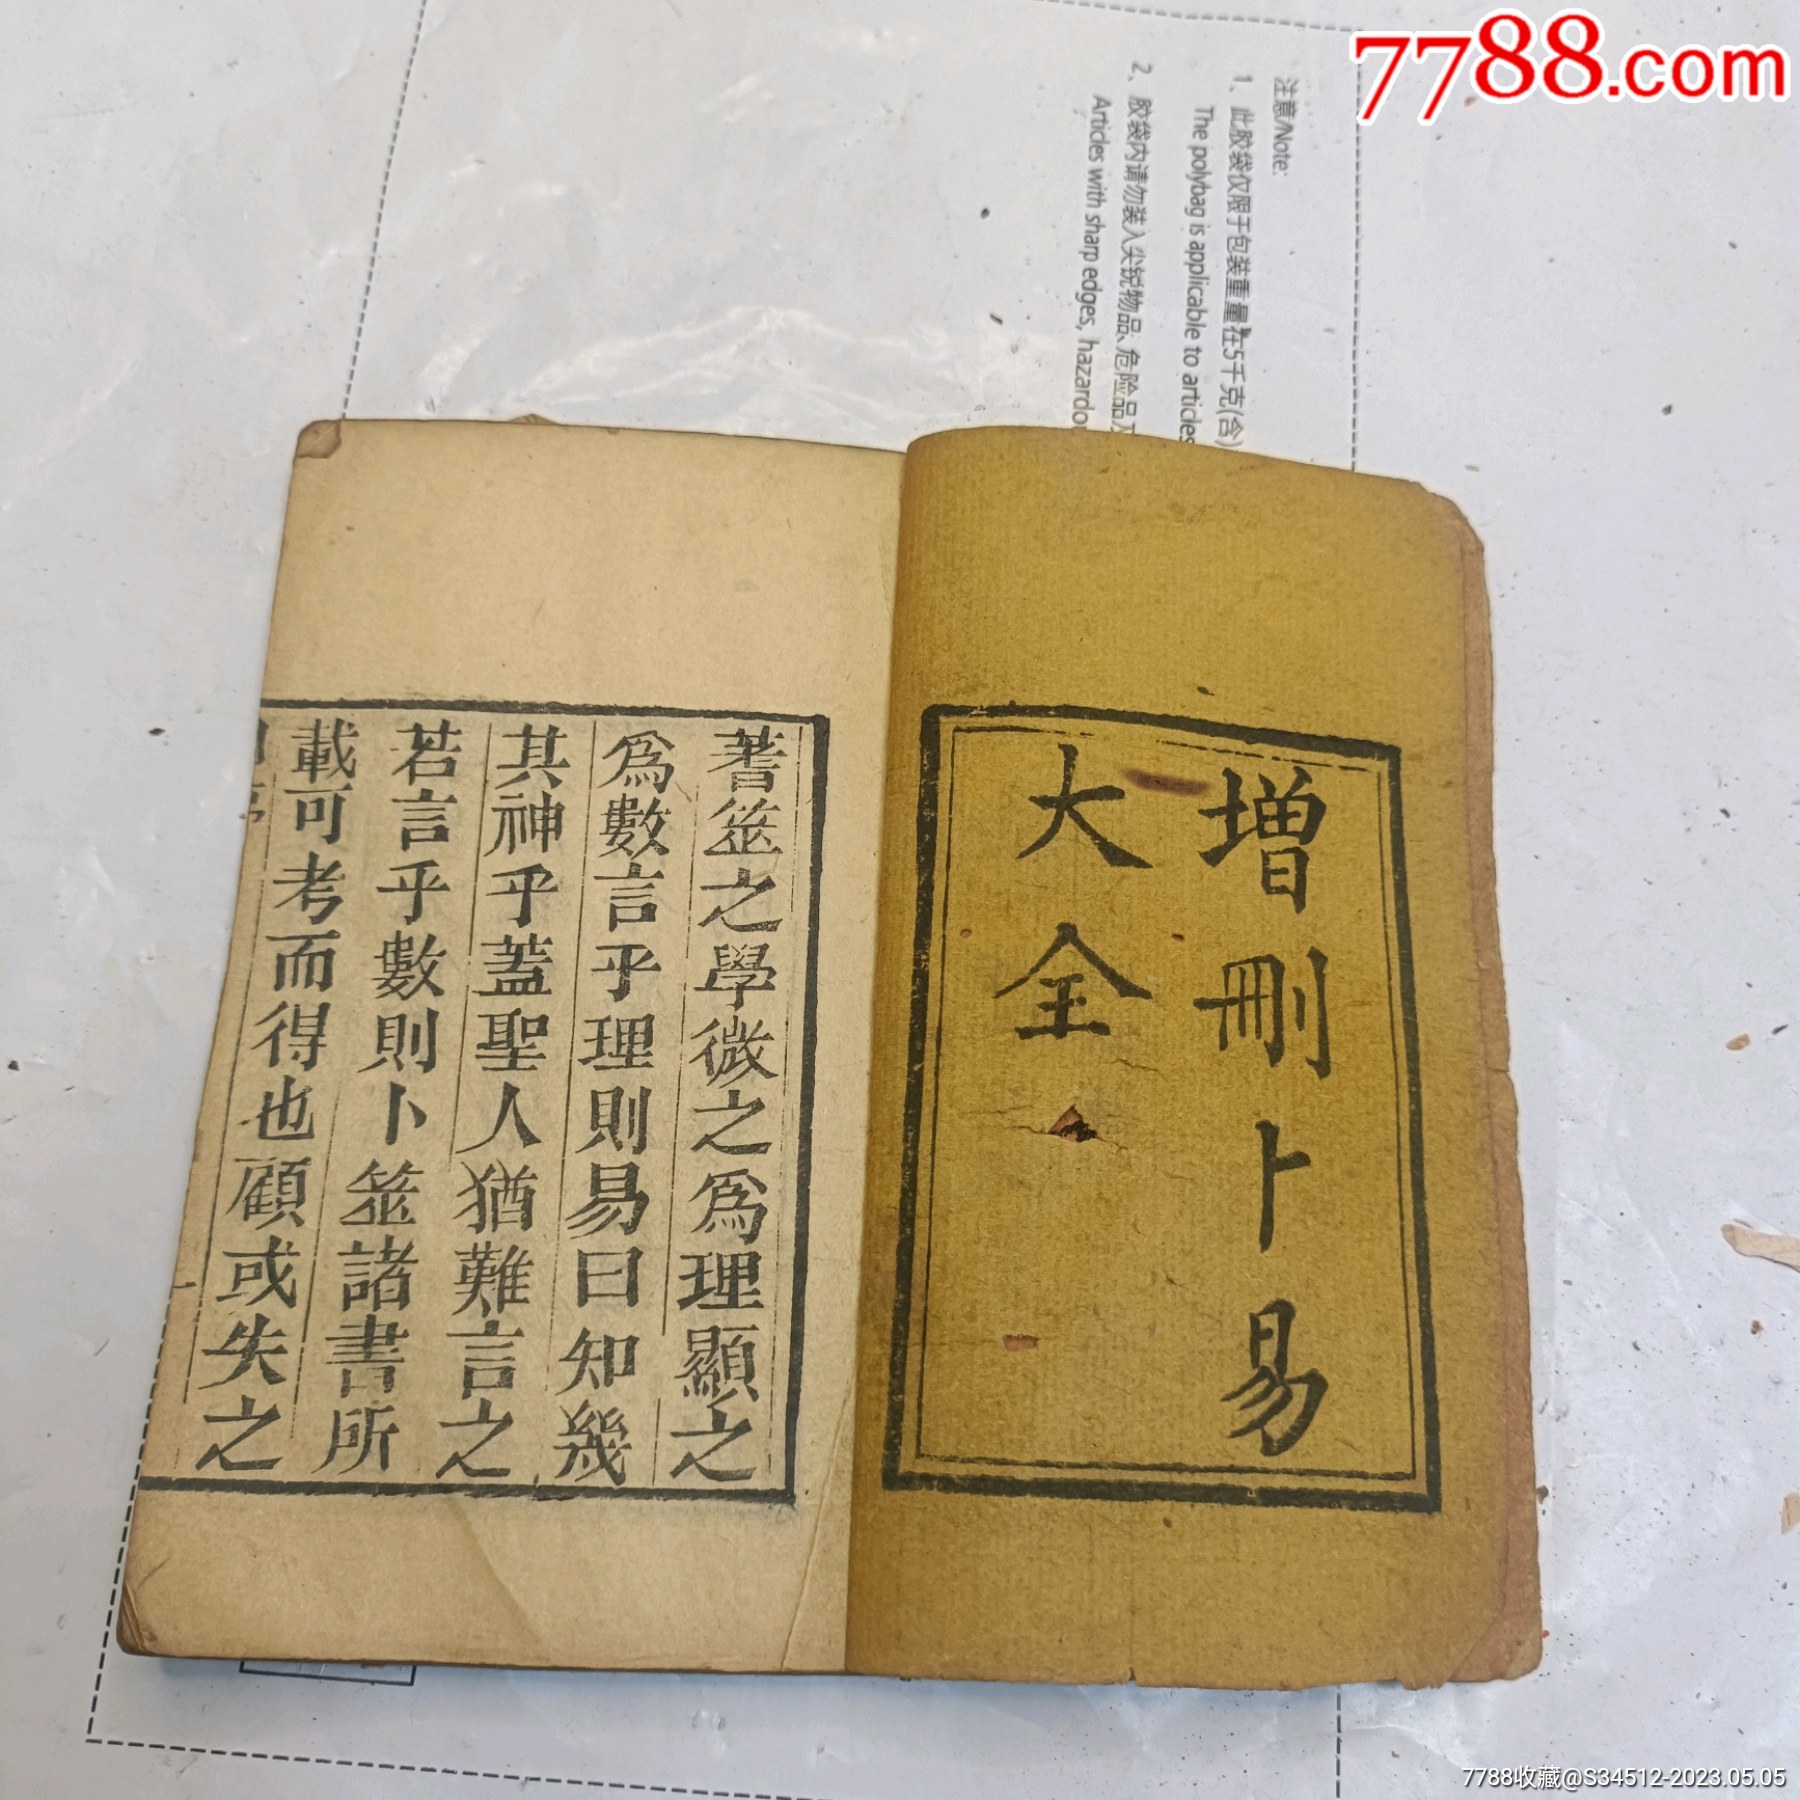 7788.com
注意/Note:
1、此胶袋仅限于包装重量在5千克(含)
The polybag is applicable to articles
2、胶袋内请勿装入尖锐物品、危险品及
Articles with sharp edges, hazardou
增刪卜易
大全
蓍筮之學微之爲理顯之
爲數言乎理則易曰知幾
其神乎蓋聖人猶難言之
若言乎數則卜筮諸書所
載可考而得也顧或失之
7788收藏@S34512-2023.05.05